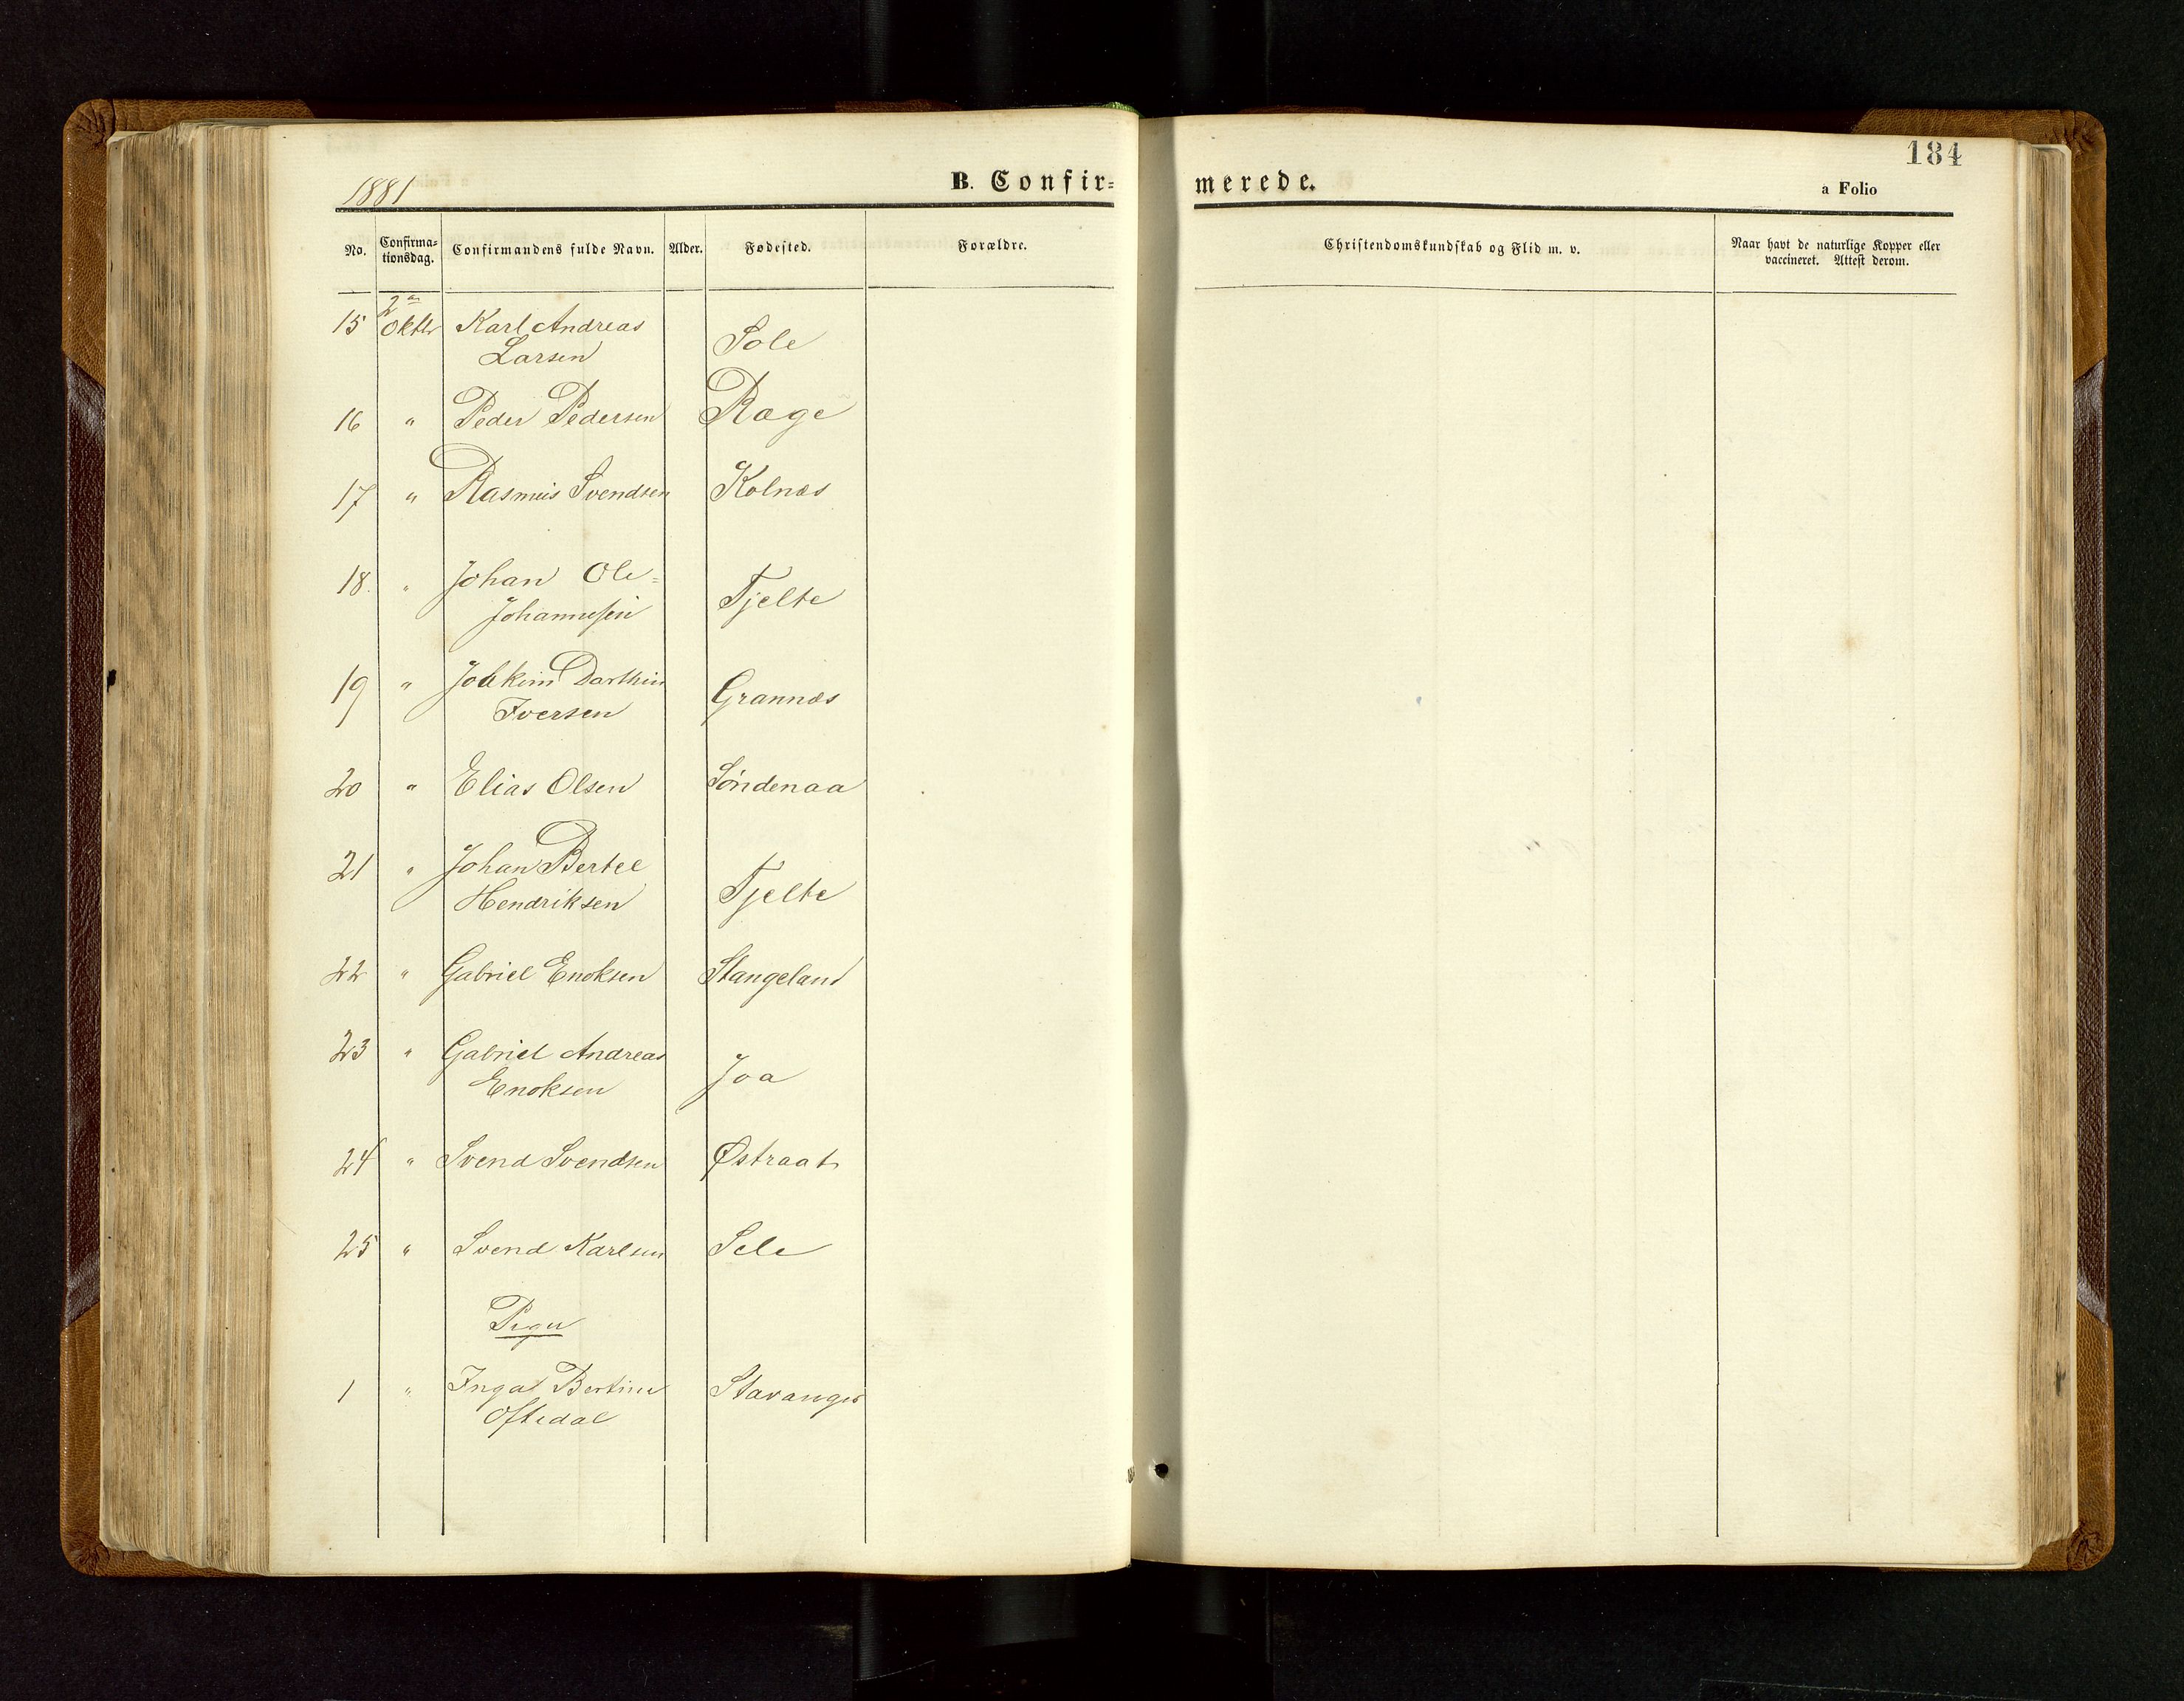 1881
B. Confir=
merede.
184
a Folio
No.
Confirma=
tionsdag.
Confirmandens fulde Navn.
Alder.
Fødested.
Forældre.
Christendomskundskab og Flid m. v.
Naar havt de naturlige Kopper eller
vaccineret. Attest derom.
15 2den Oktbr Karl Andreas
Larsen Sole
16 " Peder Pedersen Ræge
17 " Rasmus Svendsen Kolnæs
18. " Johan Ole=
Johannesen Tjelte
19 " Joakim
Iversen Grannæs
20 " Elias Olsen Söndenaa
21 " Johan Bertel
Hendriksen Tjelte
22 " Gabriel Enoksen Stangeland
23 " Gabriel Andreas
Enoksen Joa
24 " Svend Svendsen Østraat
25 " Svend Karlsen Sele
Piger
1 " Inga Bertine
Oftedal Stavanger